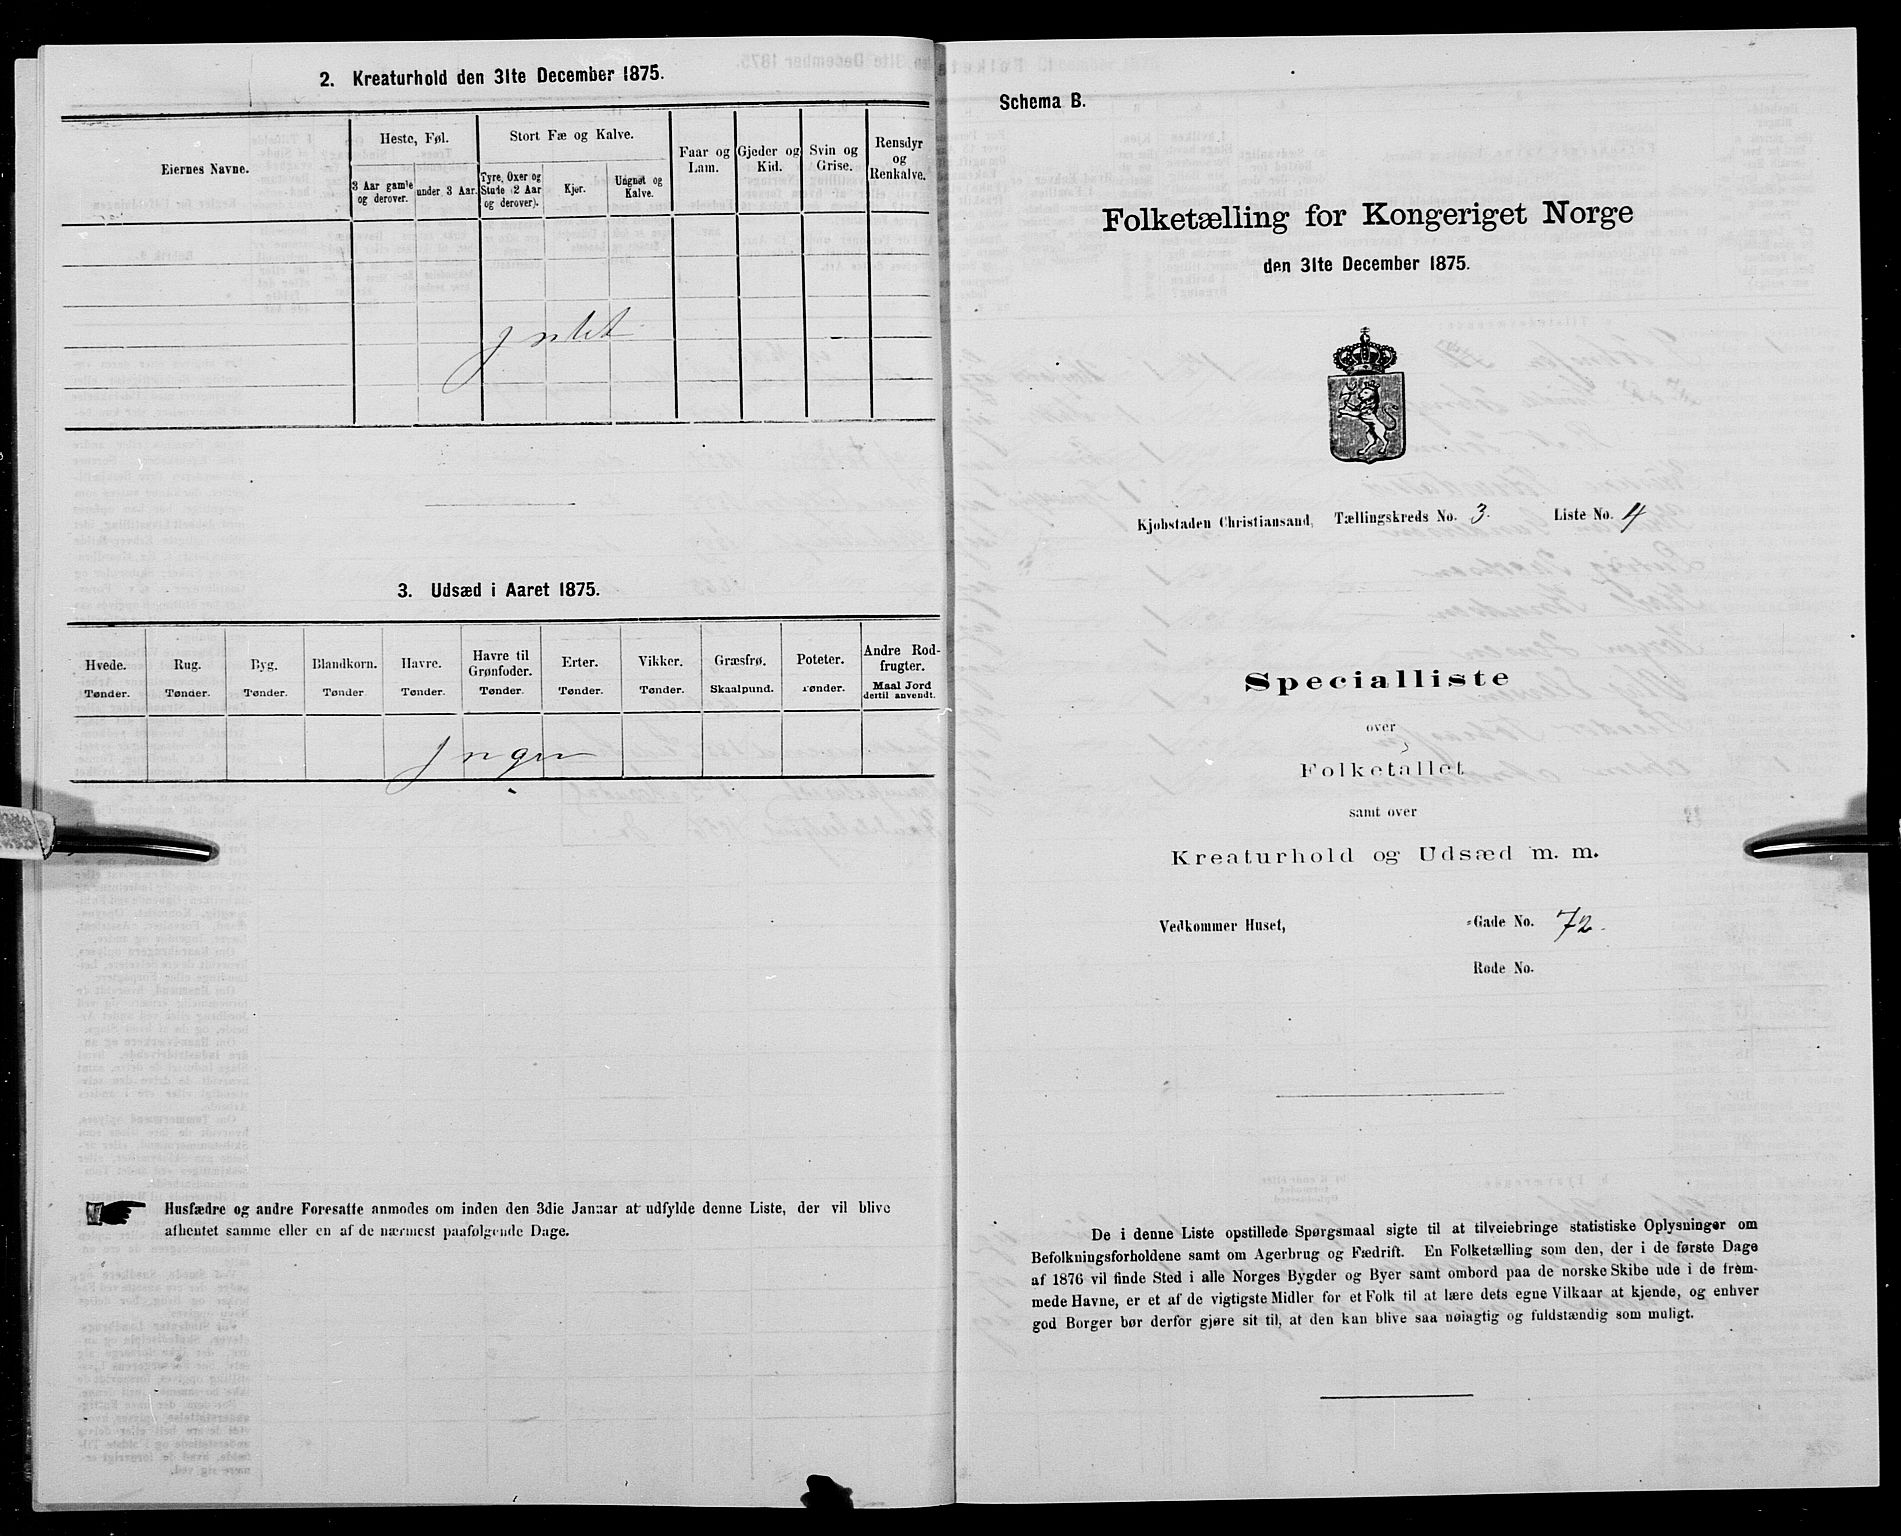 2. Kreaturhold den 31te December 1875.
Eiernes Navne.
Heste, Føl.
Stort Fæ og Kalve.
3 Aar gamle og derover.
under 3 Aar.
Tyre, Oxer og Stude (2 Aar og derover).
Kjør.
Ungnøt og Kalve.
Faar og Lam.
Gjeder og Kid.
Svin og Grise.
Rensdyr og Renkalve.
Intet
3. Udsæd i Aaret 1875.
Hvede. Rug. Byg. Blandkorn. Havre. Havre til Grønfoder. Erter. Vikker. Græsfrø. Poteter. Andre Rodfrugter.
Tønder. Tønder. Tønder. Tønder Tønder. Tønder. Tønder. Tønder. Skaalpund. Tønder. Maal Jord dertil anvendt.
Ingen
Husfædre og andre Foresatte anmodes om inden den 3die Januar at udfylde denne Liste, der vil blive
afhentet samme eller en af de nærmest paafølgende Dage.
Schema B.
Folketælling for Kongeriget Norge
den 31te December 1875.
Kjøbstaden Christiansand, Tællingskreds No. 3. Liste No. 4
Specialliste
over
Folketallet
samt over
Kreaturhold og Udsæd m. m.
Vedkommer Huset, -Gade No. 72.
Rode No.
De i denne Liste opstillede Spørgsmaal sigte til at tilveiebringe statistiske Oplysninger om
Befolkningsforholdene samt om Agerbrug og Fædrift. En Folketælling som den, der i de første Dage
af 1876 vil finde Sted i alle Norges Bygder og Byer samt ombord paa de norske Skibe ude i de frem-
mede Havne, er et af de vigtigste Midler for et Folk til at lære dets egne Vilkaar at kjende, og enhver
god Borger bør derfor gjøre sit til, at den kan blive saa nøiagtig og fuldstændig som muligt.